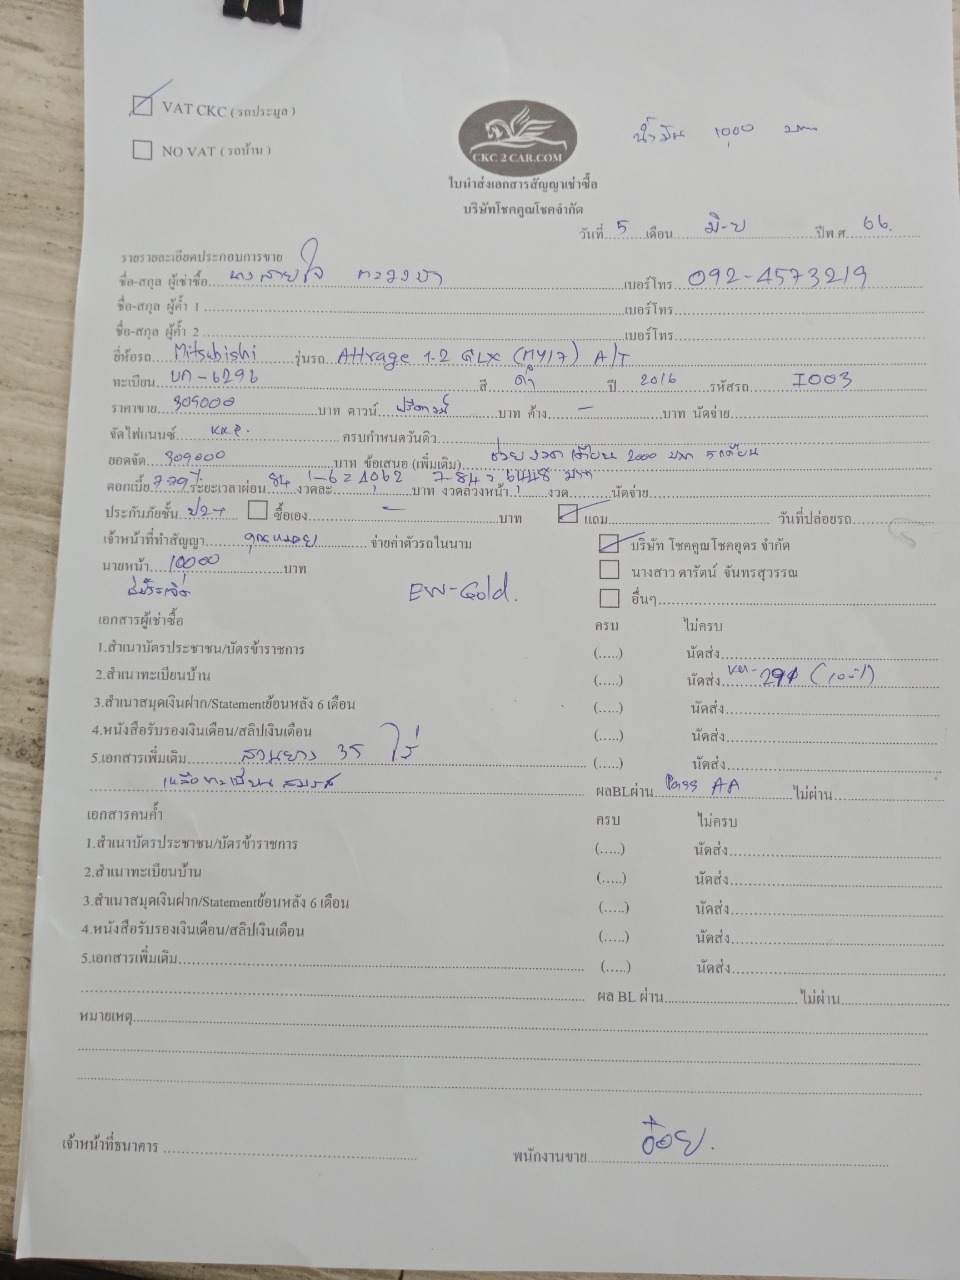 VAT CKC ( รถประมูล )
น้ำมัน 1,000 บาท
NO VAT ( รถบ้าน )
CKC 2 CAR.COM
ใบนำส่งเอกสารสัญญาเช่าซื้อ
บริษัทโชคคูณโชคจำกัด
วันที่ 5 เดือน มิ.ย ปีพ.ศ 66.
รายรายละเอียดประกอบการขาย
ชื่อ-สกุล ผู้เช่าซื้อ นางสายใจ เบอร์โทร 092-4573219
ชื่อ-สกุล ผู้ค้ำ 1 เบอร์โทร
ชื่อ-สกุล ผู้ค้ำ 2 เบอร์โทร
ยี่ห้อรถ Mitsubishi รุ่นรถ Attrage 1.2 GLX (MY17) A/T
ทะเบียน ยก-6296 สี ดำ ปี 2016 รหัสรถ I003
ราคาขาย 309000 บาท ดาวน์ ฟรีดาวน์ บาท ค้าง - บาท นัดจ่าย
จัดไฟแนนซ์ KKP. ครบกำหนดวันดิว
ยอดจัด 309000 บาท ข้อเสนอ (เพิ่มเติม) ช่วยงวด เดือน 2000 บาท 5 เดือน
ดอกเบี้ย 7.79% ระยะเวลาผ่อน 84 งวดละ 1-6 = 4,062 7-84 = 6,448 บาท บาท งวดล่วงหน้า งวด นัดจ่าย
ประกันภัยชั้น ป2+ ซื้อเอง - บาท แถม วันที่ปล่อยรถ
เจ้าหน้าที่ทำสัญญา จ่ายค่าตัวรถในนาม บริษัท โชคคูณโชคอุดร จำกัด
นายหน้า 10000 บาท นางสาว ดารัตน์ จันทรสุวรรณ
EW-Gold. อื่นๆ
เอกสารผู้เช่าซื้อ ครบ ไม่ครบ
1.สำเนาบัตรประชาชน/บัตรข้าราชการ (.....) นัดส่ง
2.สำเนาทะเบียนบ้าน (.....) นัดส่ง
3.สำเนาสมุดเงินฝาก/Statementย้อนหลัง 6 เดือน (.....) นัดส่ง
4.หนังสือรับรองเงินเดือน/สลิปเงินเดือน (.....) นัดส่ง
5.เอกสารเพิ่มเติม สวนยาง 35 ไร่ (.....) นัดส่ง
เหลือทะเบียนสมรส ผลBLผ่าน Pass AA ไม่ผ่าน
เอกสารคนค้ำ ครบ ไม่ครบ
1.สำเนาบัตรประชาชน/บัตรข้าราชการ (.....) นัดส่ง
2.สำเนาทะเบียนบ้าน (.....) นัดส่ง
3.สำเนาสมุดเงินฝาก/Statementย้อนหลัง 6 เดือน (.....) นัดส่ง
4.หนังสือรับรองเงินเดือน/สลิปเงินเดือน (.....) นัดส่ง
5.เอกสารเพิ่มเติม (.....) นัดส่ง
ผล BL ผ่าน ไม่ผ่าน
หมายเหตุ
เจ้าหน้าที่ธนาคาร
พนักงานขาย อ๋อย.